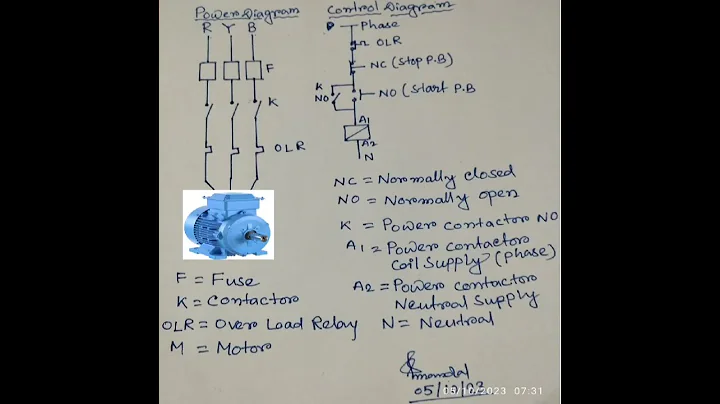 Power Diagram
R Y B
F
K
OLR
F = Fuse
K = Contactor
OLR = Over Load Relay
M = Motor
Control Diagram
P Phase
OLR
NC (Stop P.B)
K
NO
NO (Start P.B
A1
A2
N
NC = Normally closed
NO = Normally open
K = Power contactor NO
A1 = Power contactor
coil Supply (Phase)
A2 = Power contactor
Neutral Supply
N = Neutral
05/10/23
05/10/2023 07:31